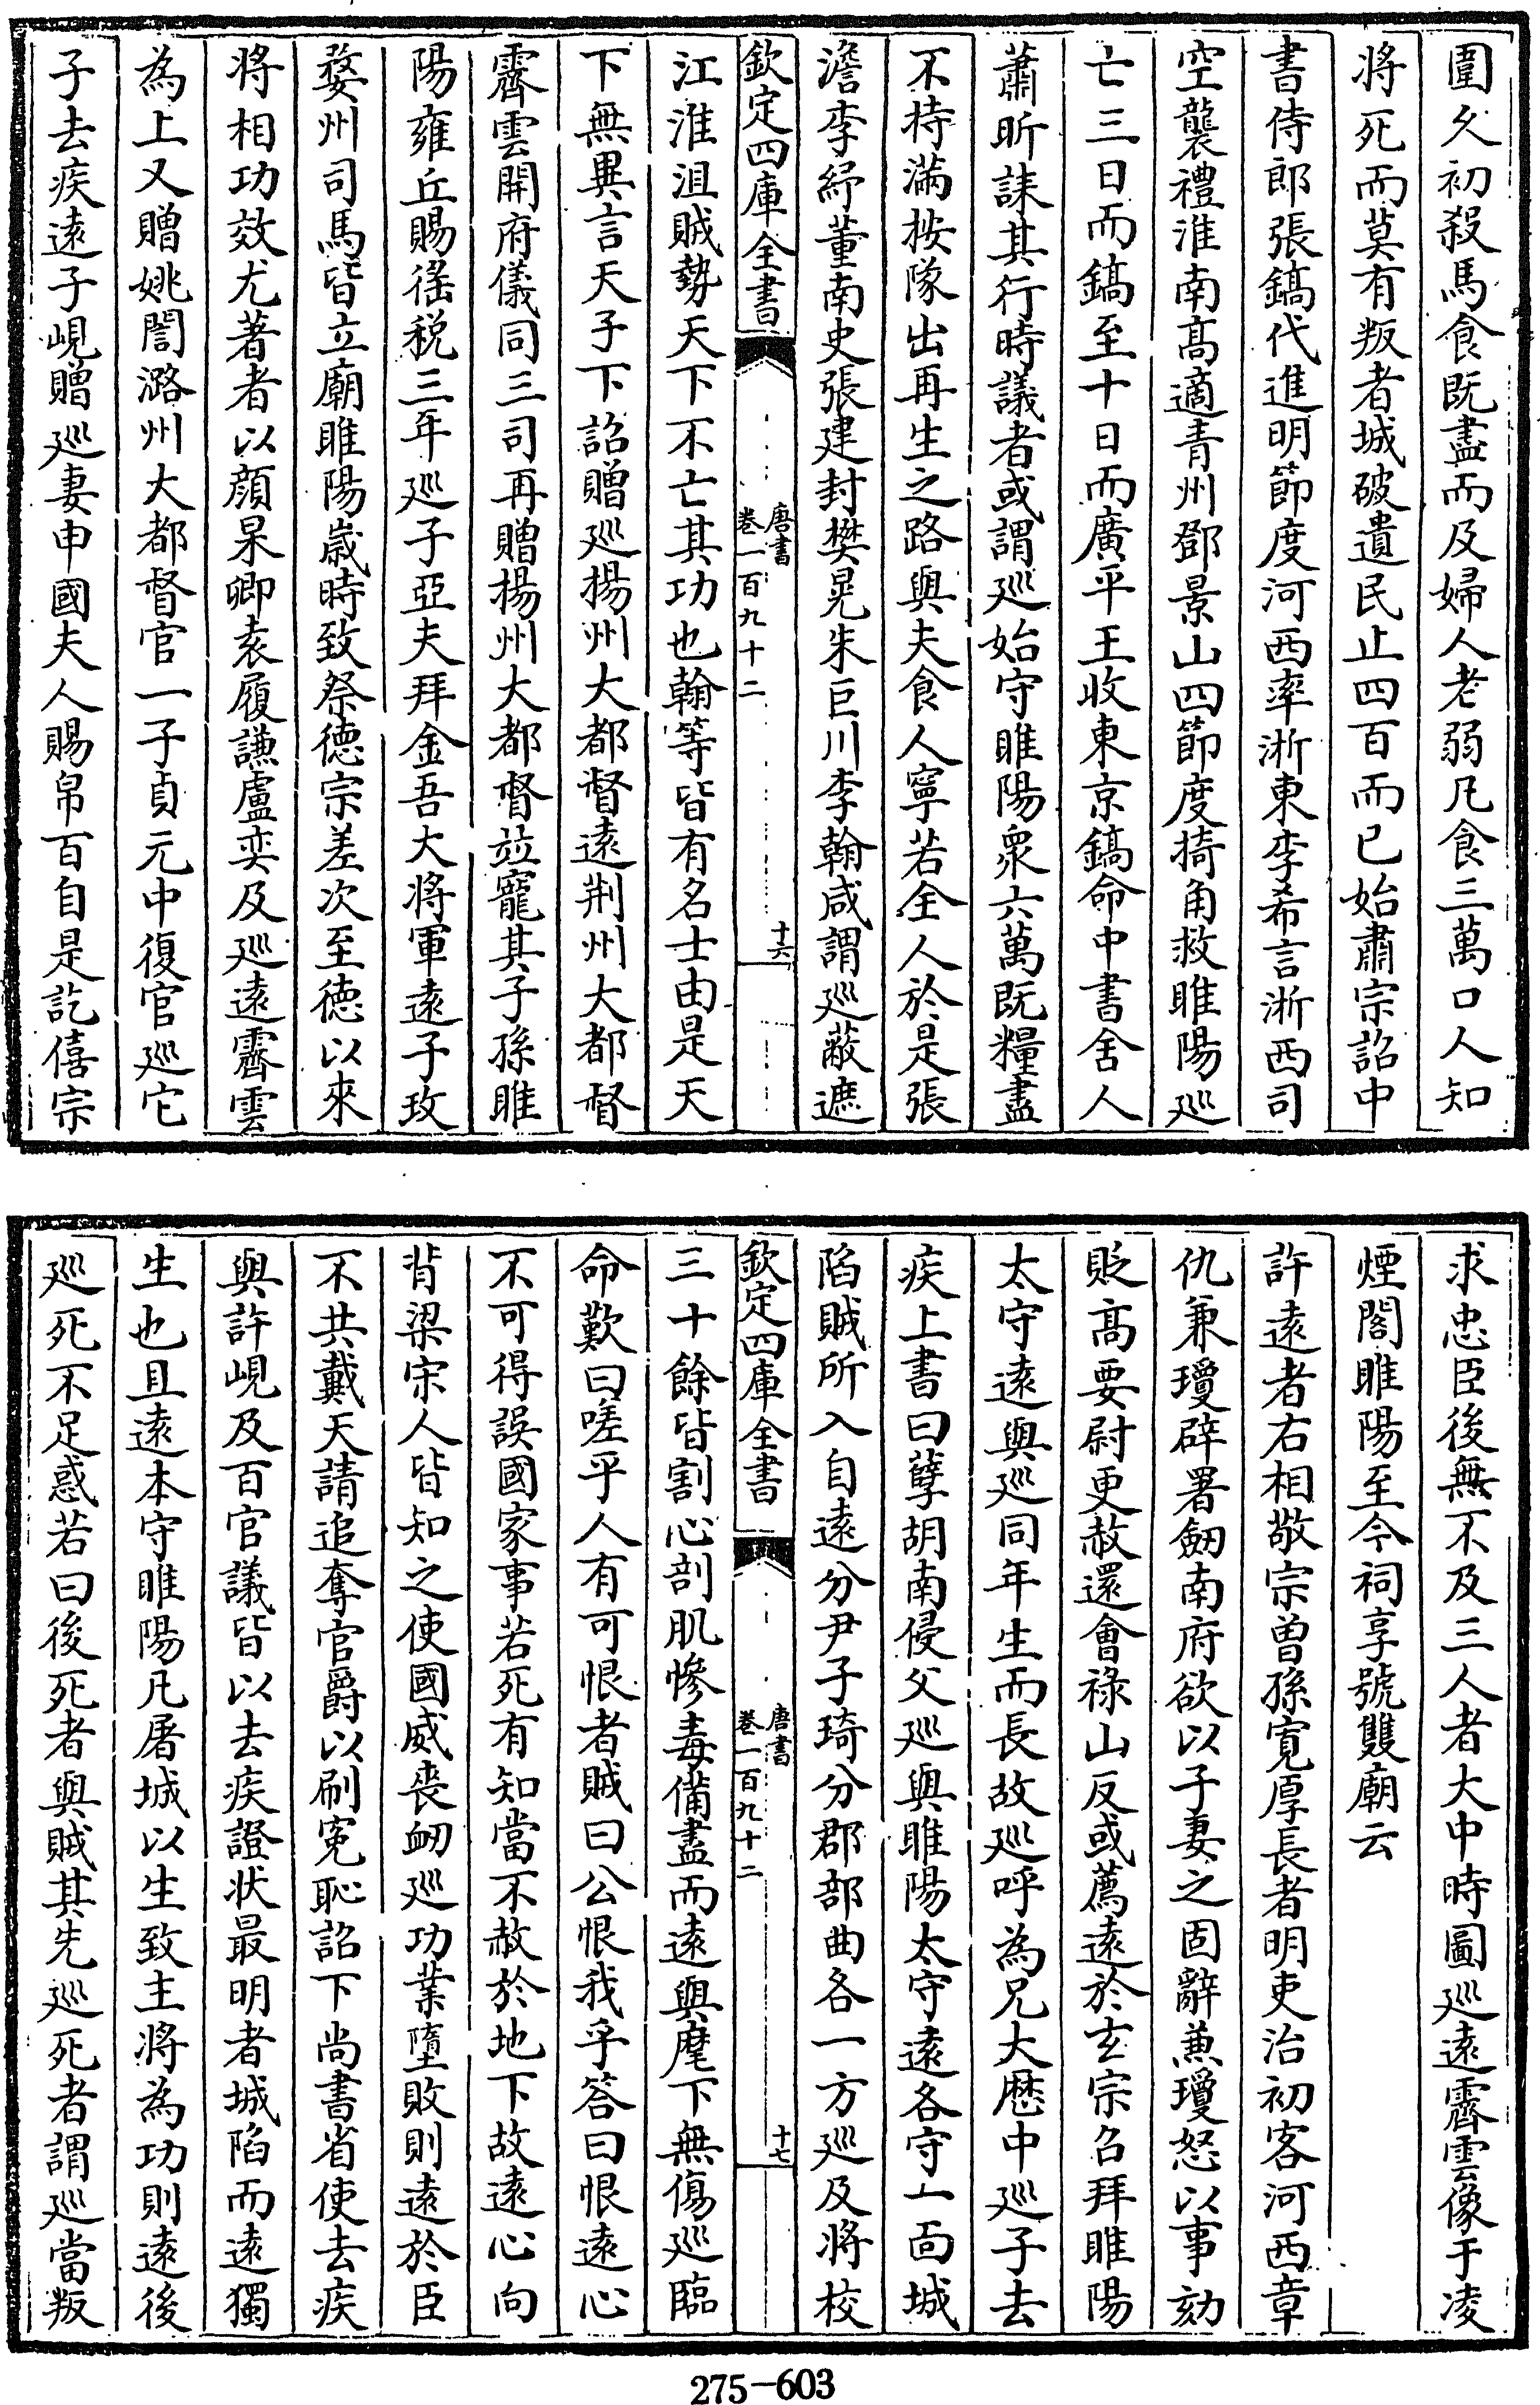 圍久初殺馬食既盡而及婦人老弱凡食三萬口人知
將死而莫有叛者城破遺民止四百而已始肅宗詔中
書侍郎張鎬代進明節度河西率浙東李希言浙西司
空襲禮淮南高適青州鄧景山四節度掎角救睢陽巡
亡三日而鎬至十日而廣平王收東京鎬命中書舍人
蕭昕誄其行時議者或謂巡始守睢陽衆六萬既糧盡
不持滿按隊出再生之路與夫食人寧若全人於是張
澹李紓董南史張建封樊晃朱巨川李翰咸謂巡蔽遮
欽定四庫全書
唐書
卷一百九十二
十六
江淮沮賊勢天下不亡其功也翰等皆有名士由是天
下無異言天子下詔贈巡揚州大都督遠荆州大都督
霽雲開府儀同三司再贈揚州大都督竝寵其子孫睢
陽雍丘賜徭税三年巡子亞夫拜金吾大將軍遠子玫
婺州司馬皆立廟睢陽歲時致祭德宗差次至德以來
將相功效尤著者以顔杲卿袁履謙盧奕及巡遠霽雲
為上又贈姚誾潞州大都督官一子貞元中復官巡它
子去疾遠子峴贈巡妻申國夫人賜帛百自是訖僖宗
求忠臣後無不及三人者大中時圖巡遠霽雲像于凌
煙閣睢陽至今祠享號雙廟云
許遠者右相敬宗曾孫寛厚長者明吏治初客河西章
仇兼瓊辟署劒南府欲以子妻之固辭兼瓊怒以事劾
貶高要尉更赦還會禄山反或薦遠於玄宗召拜睢陽
太守遠與巡同年生而長故巡呼為兄大厯中巡子去
疾上書曰孽胡南侵父巡與睢陽太守遠各守一面城
陷賊所入自遠分尹子琦分郡部曲各一方巡及將校
欽定四庫全書
唐書
卷一百九十二
十七
三十餘皆割心剖肌慘毒備盡而遠與麾下無傷巡臨
命歎曰嗟乎人有可恨者賊曰公恨我乎答曰恨遠心
不可得誤國家事若死有知當不赦於地下故遠心向
背梁宋人皆知之使國威喪衂巡功業墮敗則遠於臣
不共戴天請追奪官爵以刷寃恥詔下尚書省使去疾
與許峴及百官議皆以去疾證狀最明者城陷而遠獨
生也且遠本守睢陽凡屠城以生致主將為功則遠後
巡死不足惑若曰後死者與賊其先巡死者謂巡當叛
275-603